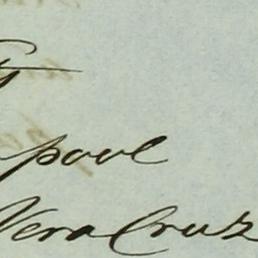 pool
Vera Cruz